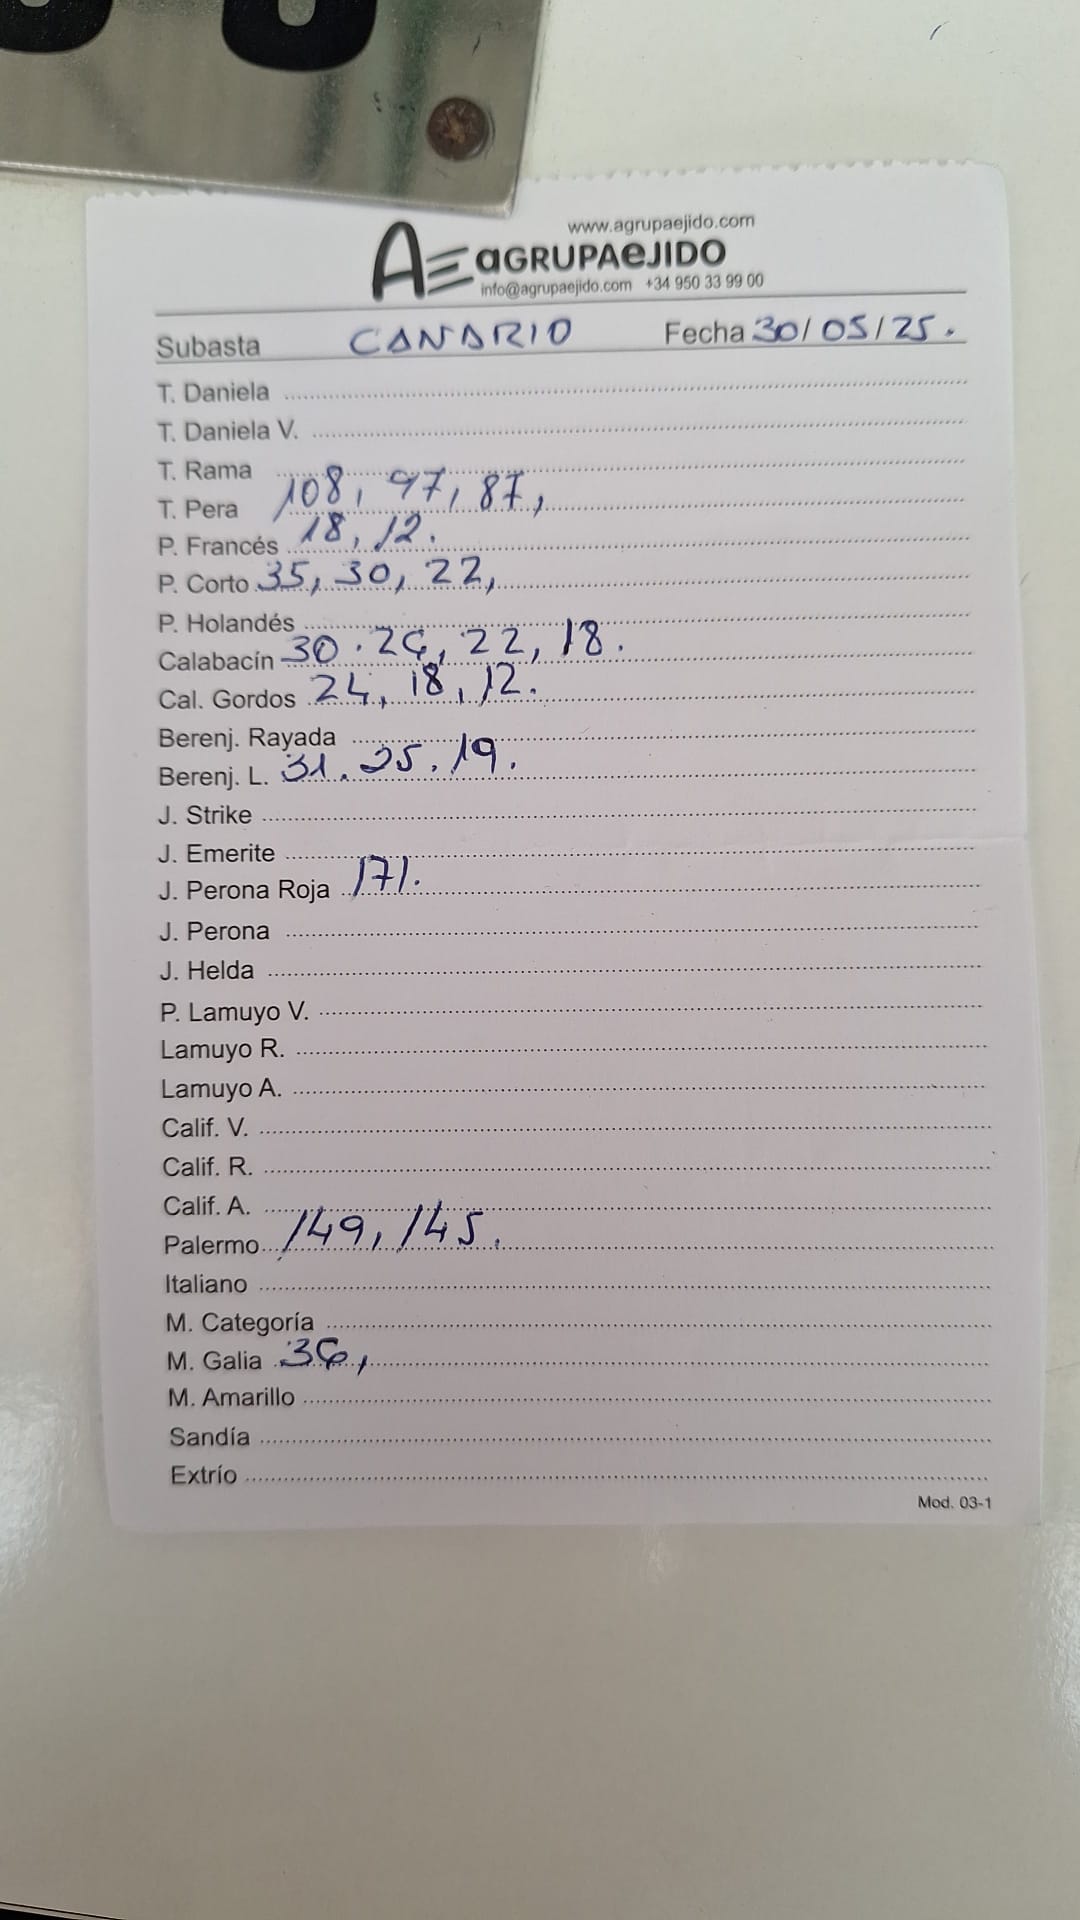 www.agrupaejido.com
AE aGRUPAeJIDO
info@agrupaejido.com +34 950 33 99 00
Subasta CANARIO Fecha 30/05/25.
T. Daniela
T. Daniela V.
T. Rama
T. Pera 108, 97, 87,
P. Francés 18, 12.
P. Corto 35, 30, 22,
P. Holandés
Calabacín 30. 26, 22, 18.
Cal. Gordos 24, 18, 12.
Berenj. Rayada
Berenj. L. 31. 25. 19.
J. Strike
J. Emerite
J. Perona Roja 171.
J. Perona
J. Helda
P. Lamuyo V.
Lamuyo R.
Lamuyo A.
Calif. V.
Calif. R.
Calif. A.
Palermo 149, 145.
Italiano
M. Categoría
M. Galia 36,
M. Amarillo
Sandía
Extrío
Mod. 03-1